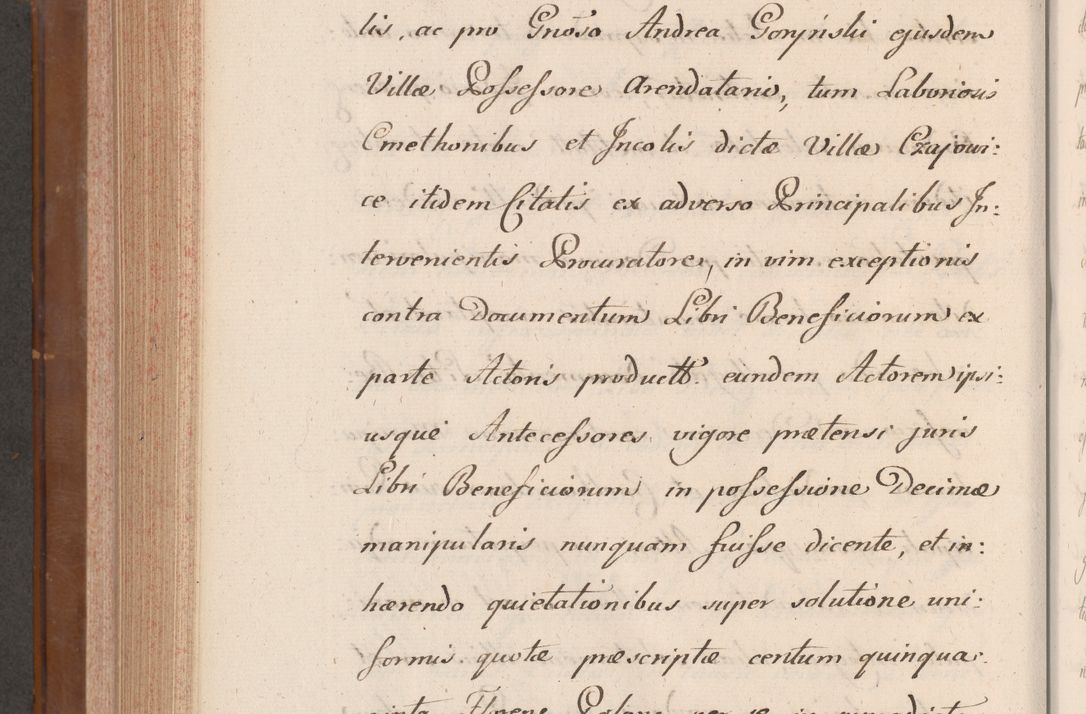 lis, ac pro Gnõso Andrea Goryński ejusdem
Villæ Possessore Arendatario, tum Laboriosis
Cmethonibus et Incolis dictæ Villæ Czajowi:
ce itidem Citatis ex adverso Principalibus In:
tervenientis Procuratore, in vim exceptionis
contra Documentum Libri Beneficiorum ex
parte Actoris productt. eundem Actorem ipsi:
usque Antecessores vigore prætensi juris
Libri Beneficiorum in possessione Decimæ
manipularis nunquam fuisse dicente, et in:
hærendo quietationibus super solutione uni:
formis quotæ præscriptæ centum quinqua:
ginta Floreno Polono per se in